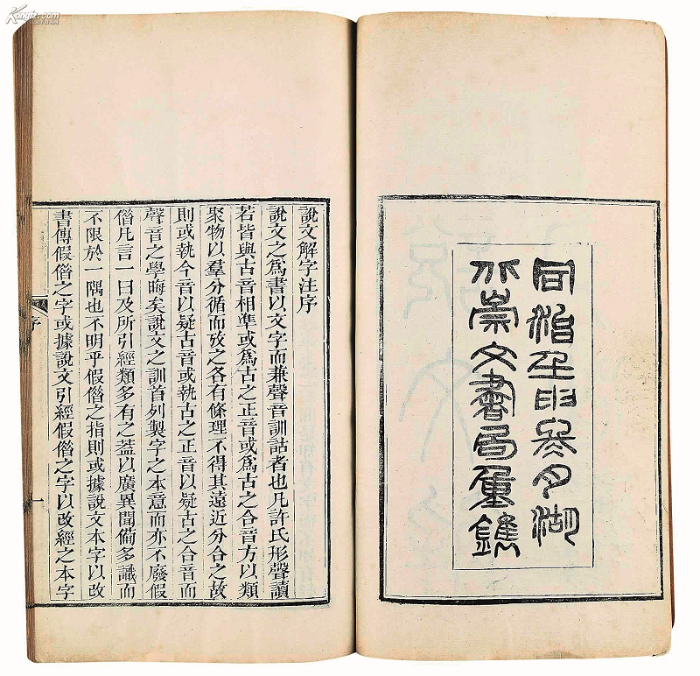 同治壬申參月湖
北崇文書局重鐫
說文解字注序
說文之爲書以文字而兼聲音訓詁者也凡許氏形聲讀
若皆與古音相準或爲古之正音或爲古之合音方以類
聚物以羣分循而攷之各有條理不得其遠近分合之故
則或執今音以疑古音或執古之正音以疑古之合音而
聲音之學晦矣說文之訓首列製字之本意而亦不廢假
偺凡言一曰及所引經類多有之葢以廣異聞僃多識而
不限於一隅也不明乎假偺之指則或據說文本字以改
書傳假偺之字或據說文引經假偺之字以改經之本字
序
一